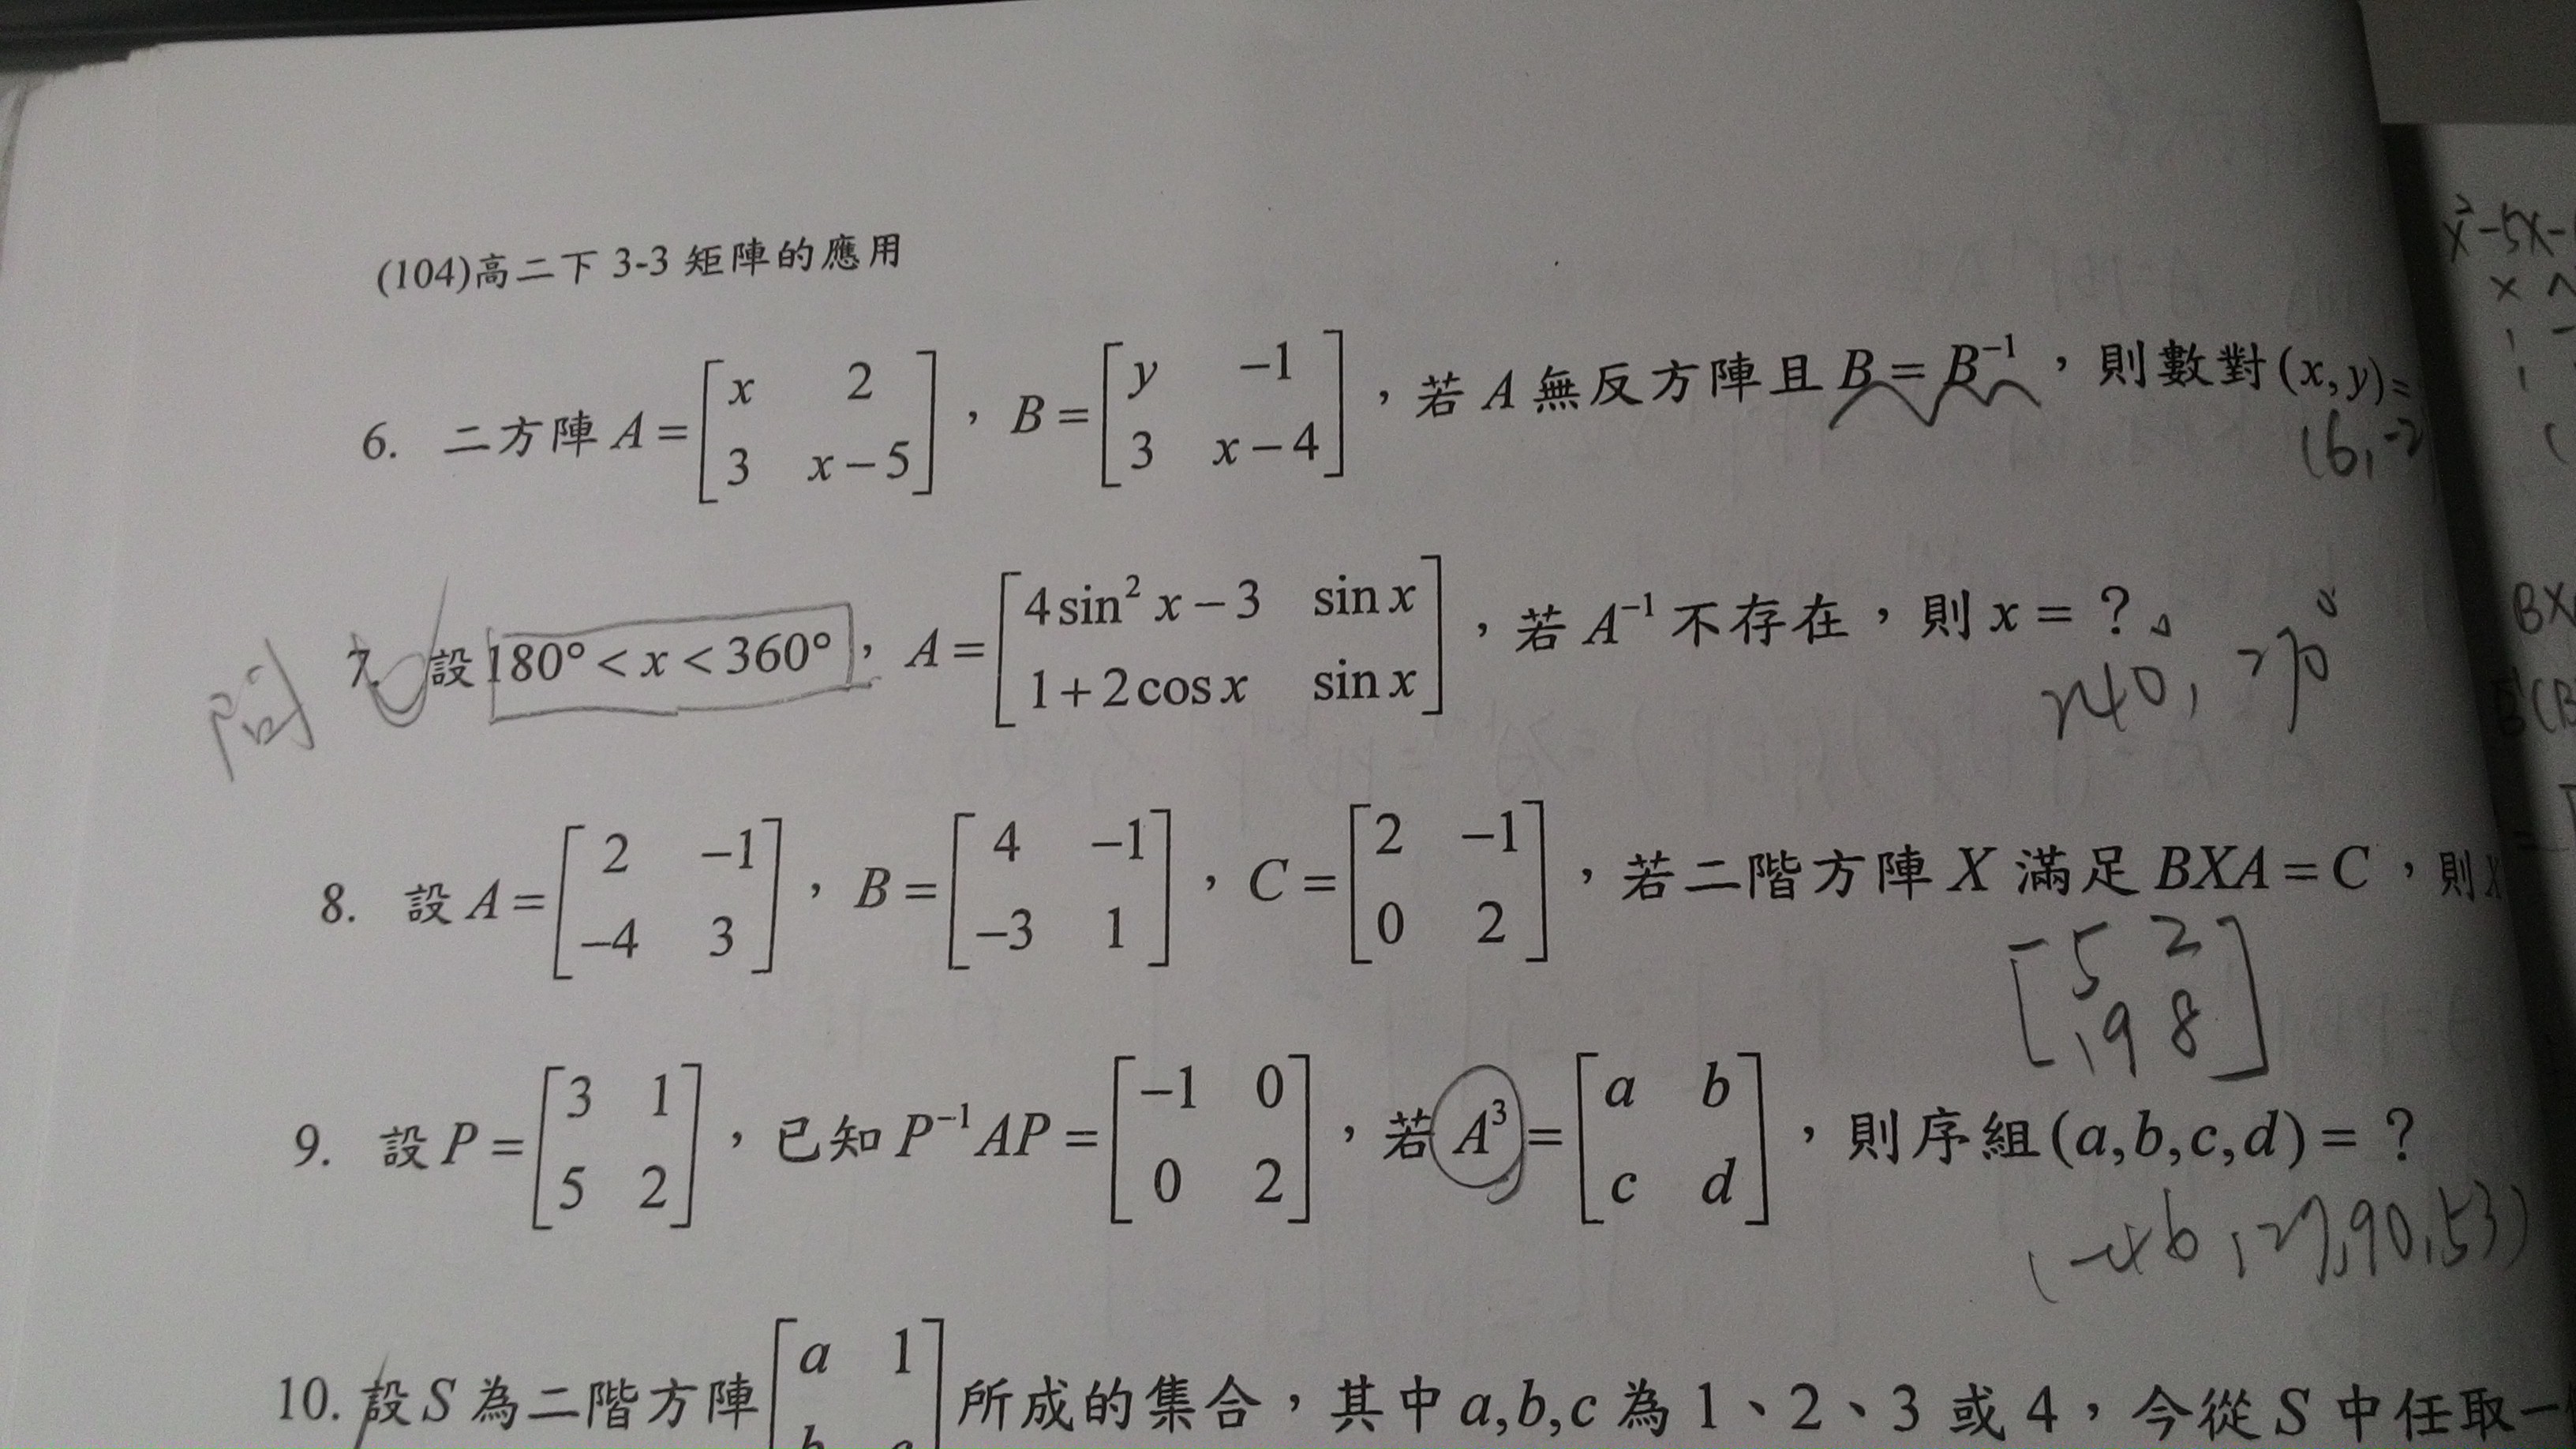 (104)高二下 3-3 矩陣的應用
6. 二方陣 A = [x 2; 3 x−5] , B = [y −1; 3 x−4] , 若 A 無反方陣且 B = B⁻¹ , 則數對 (x, y) =
(6, -2
問 7. 設 180° < x < 360° , A = [4sin² x − 3 sin x; 1 + 2cos x sin x] , 若 A⁻¹ 不存在 , 則 x = ?
240°, 270°
8. 設 A = [2 −1; −4 3] , B = [4 −1; −3 1] , C = [2 −1; 0 2] , 若二階方陣 X 滿足 BXA = C , 則 X
[5 2; 19 8]
9. 設 P = [3 1; 5 2] , 已知 P⁻¹AP = [−1 0; 0 2] , 若 A³ = [a b; c d] , 則序組 (a, b, c, d) = ?
(-46, 27, 90, 53)
10. 設 S 為二階方陣 [a 1; b c] 所成的集合 , 其中 a, b, c 為 1、2、3 或 4 , 今從 S 中任取一
x² - 5x -
BX